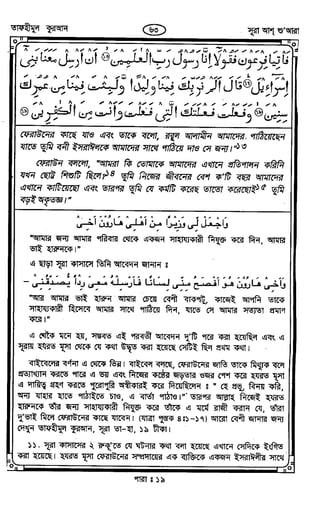 তাফহীমুল কুরআন
৬৩
সূরা আশ্ শু'আরা
فَأْتِيَا فِرْعَوْنَ فَقُولَا إِنَّا رَسُولُ رَبِّ الْعَلَمِينَ ۝ أَنْ أَرْسِلْ مَعَنَا بَنِي
إِسْرَاءِيلَ ۝ قَالَ أَلَمْ نُرَبِّكَ فِينَا وَلِيدًا وَلَبِثْتَ فِينَا مِنْ عُمُرِكَ
سِنِينَ ۝ وَفَعَلْتَ فَعْلَتَكَ الَّتِي فَعَلْتَ وَأَنْتَ مِنَ الْكَفِرِينَ ۝
ফেরাউনের কাছে যাও এবং তাকে বলো, রব্বুল আলামীন আমাদের পাঠিয়েছেন
যাতে তুমি বনী ইসরাঈলকে আমাদের সাথে পাঠিয়ে দাও সে জন্য।"১৩
ফেরাউন বললো, "আমরা কি তোমাকে আমাদের এখানে প্রতিপালন করিনি
যখন ছোট্ট শিশুটি ছিলে?১৪ তুমি নিজের জীবনের বেশ ক'টি বছর আমাদের
এখানে কাটিয়েছো এবং তারপর তুমি যে কর্মটি করেছ তাতো করেছোই১৫ তুমি
বড়ই অকৃতজ্ঞ।"
وَاجْعَلْ لِّي وَزِيرًا مِّنْ أَهْلِي هَارُونَ أَخِي
"আমার জন্য আমার পরিবার থেকে একজন সাহায্যকারী নিযুক্ত করে দিন, আমার
ভাই হারুনকে।"
এ ছাড়া সূরা কাসাসে তিনি আবেদন জানান ঃ
وَأَخِي هَارُونُ هُوَ أَفْصَحُ مِنِّي لِسَانًا فَأَرْسِلْهُ مَعِيَ رِدْأً يُصَدِّقُنِي -
"আর আমার ভাই হারুন আমার চেয়ে বেশী বাকপটু, কাজেই আপনি তাকে
সাহায্যকারী হিসেবে আমার সাথে পাঠিয়ে দিন, যাতে সে আমার সত্যতা প্রমাণ
করে।"
এ থেকে মনে হয়, সম্ভবত এই পরবর্তী আবেদন দু'টি পরে করা হয়েছিল এবং এ
সূরায় হযরত মূসা থেকে যে কথা উদ্ধৃত করা হয়েছে সেটিই ছিল প্রথম কথা।
বাইবেলের বর্ণনা এ থেকে ভিন্ন। বাইবেল বলছে, ফেরাউনের জাতি তাকে মিথ্যুক বলে
প্রত্যাখ্যান করতে পারে এ ভয় এবং নিজের কণ্ঠের জড়তার ওজর পেশ করে হযরত মূসা
এ দায়িত্ব গ্রহণ করতে পুরোপুরি অস্বীকারই করে দিয়েছিলেন ঃ " হে প্রভু, বিনয় করি,
অন্য যাহার হাতে পাঠাইতে চাও, এ বার্তা পাঠাও।" তারপর আল্লাহ নিজেই হযরত
হারুনকে তাঁর জন্য সাহায্যকারী নিযুক্ত করে তাঁকে এ মর্মে রাজী করান যে, তাঁরা
দু'ভাই মিলে ফেরাউনের কাছে যাবেন। (যাত্রা পুস্তক ৪ঃ১-১৭) আরো বেশী জানার জন্য
দেখুন তাফহীমুল কুরআন, সূরা তা-হা, ১৯ টীকা।
১১. সূরা কাসাসের ২ রুকু'তে যে ঘটনার কথা বলা হয়েছে এখানে সেদিকে ইংগিত
করা হয়েছে। হযরত মূসা ফেরাউনের সম্প্রদায়ের এক ব্যক্তিকে একজন ইসরাঈলীর সাথে
পারা ঃ ১৯